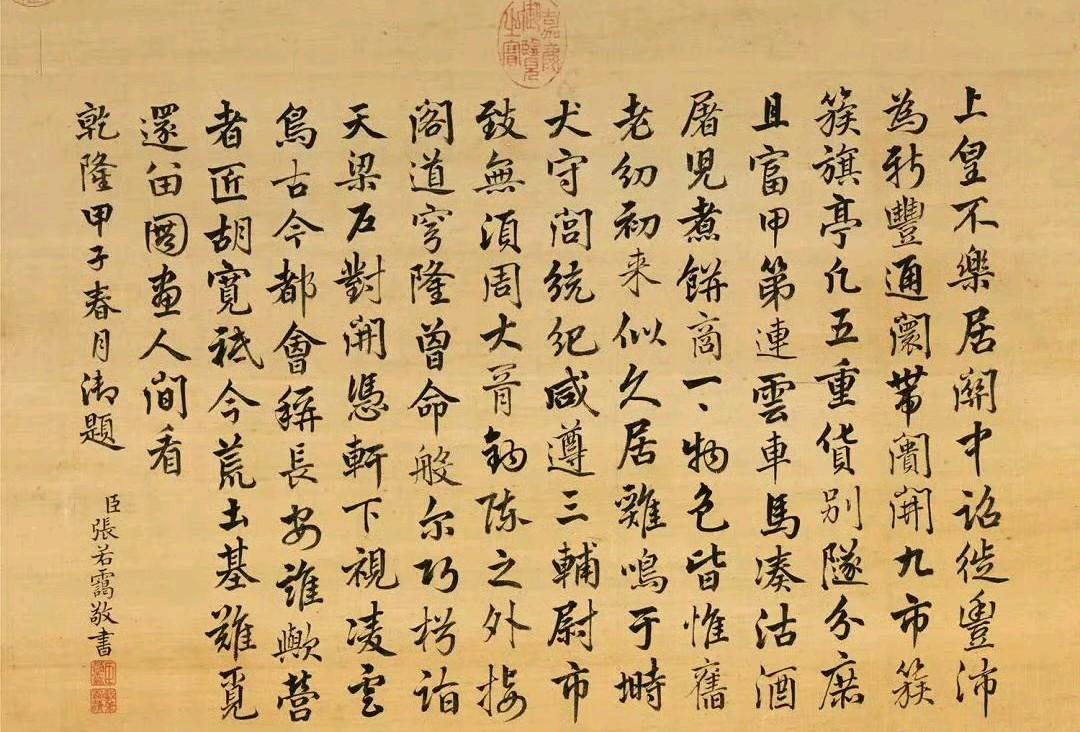 上皇不樂居關中詔徙豐沛
為新豐通闤帶闠開九市簇
簇旗亭凡五重貨别隧分庶
且富甲第連雲車馬湊沽酒
屠児煮餅商一、物色皆惟舊
老幼初来似久居雞鳴于塒
犬守閭統紀咸遵三輔尉市
致無須周大胥鈎陳之外接
閣道穹隆曾命般尔巧枍詣
天梁戶對開憑軒下視凌雲
鳥古今都會稱長安誰歟營
者匠胡寬祗今荒土基難覓
還留圖畫人間看
乾隆甲子春月御題
臣張若靄敬書
嘉慶御覽之寶